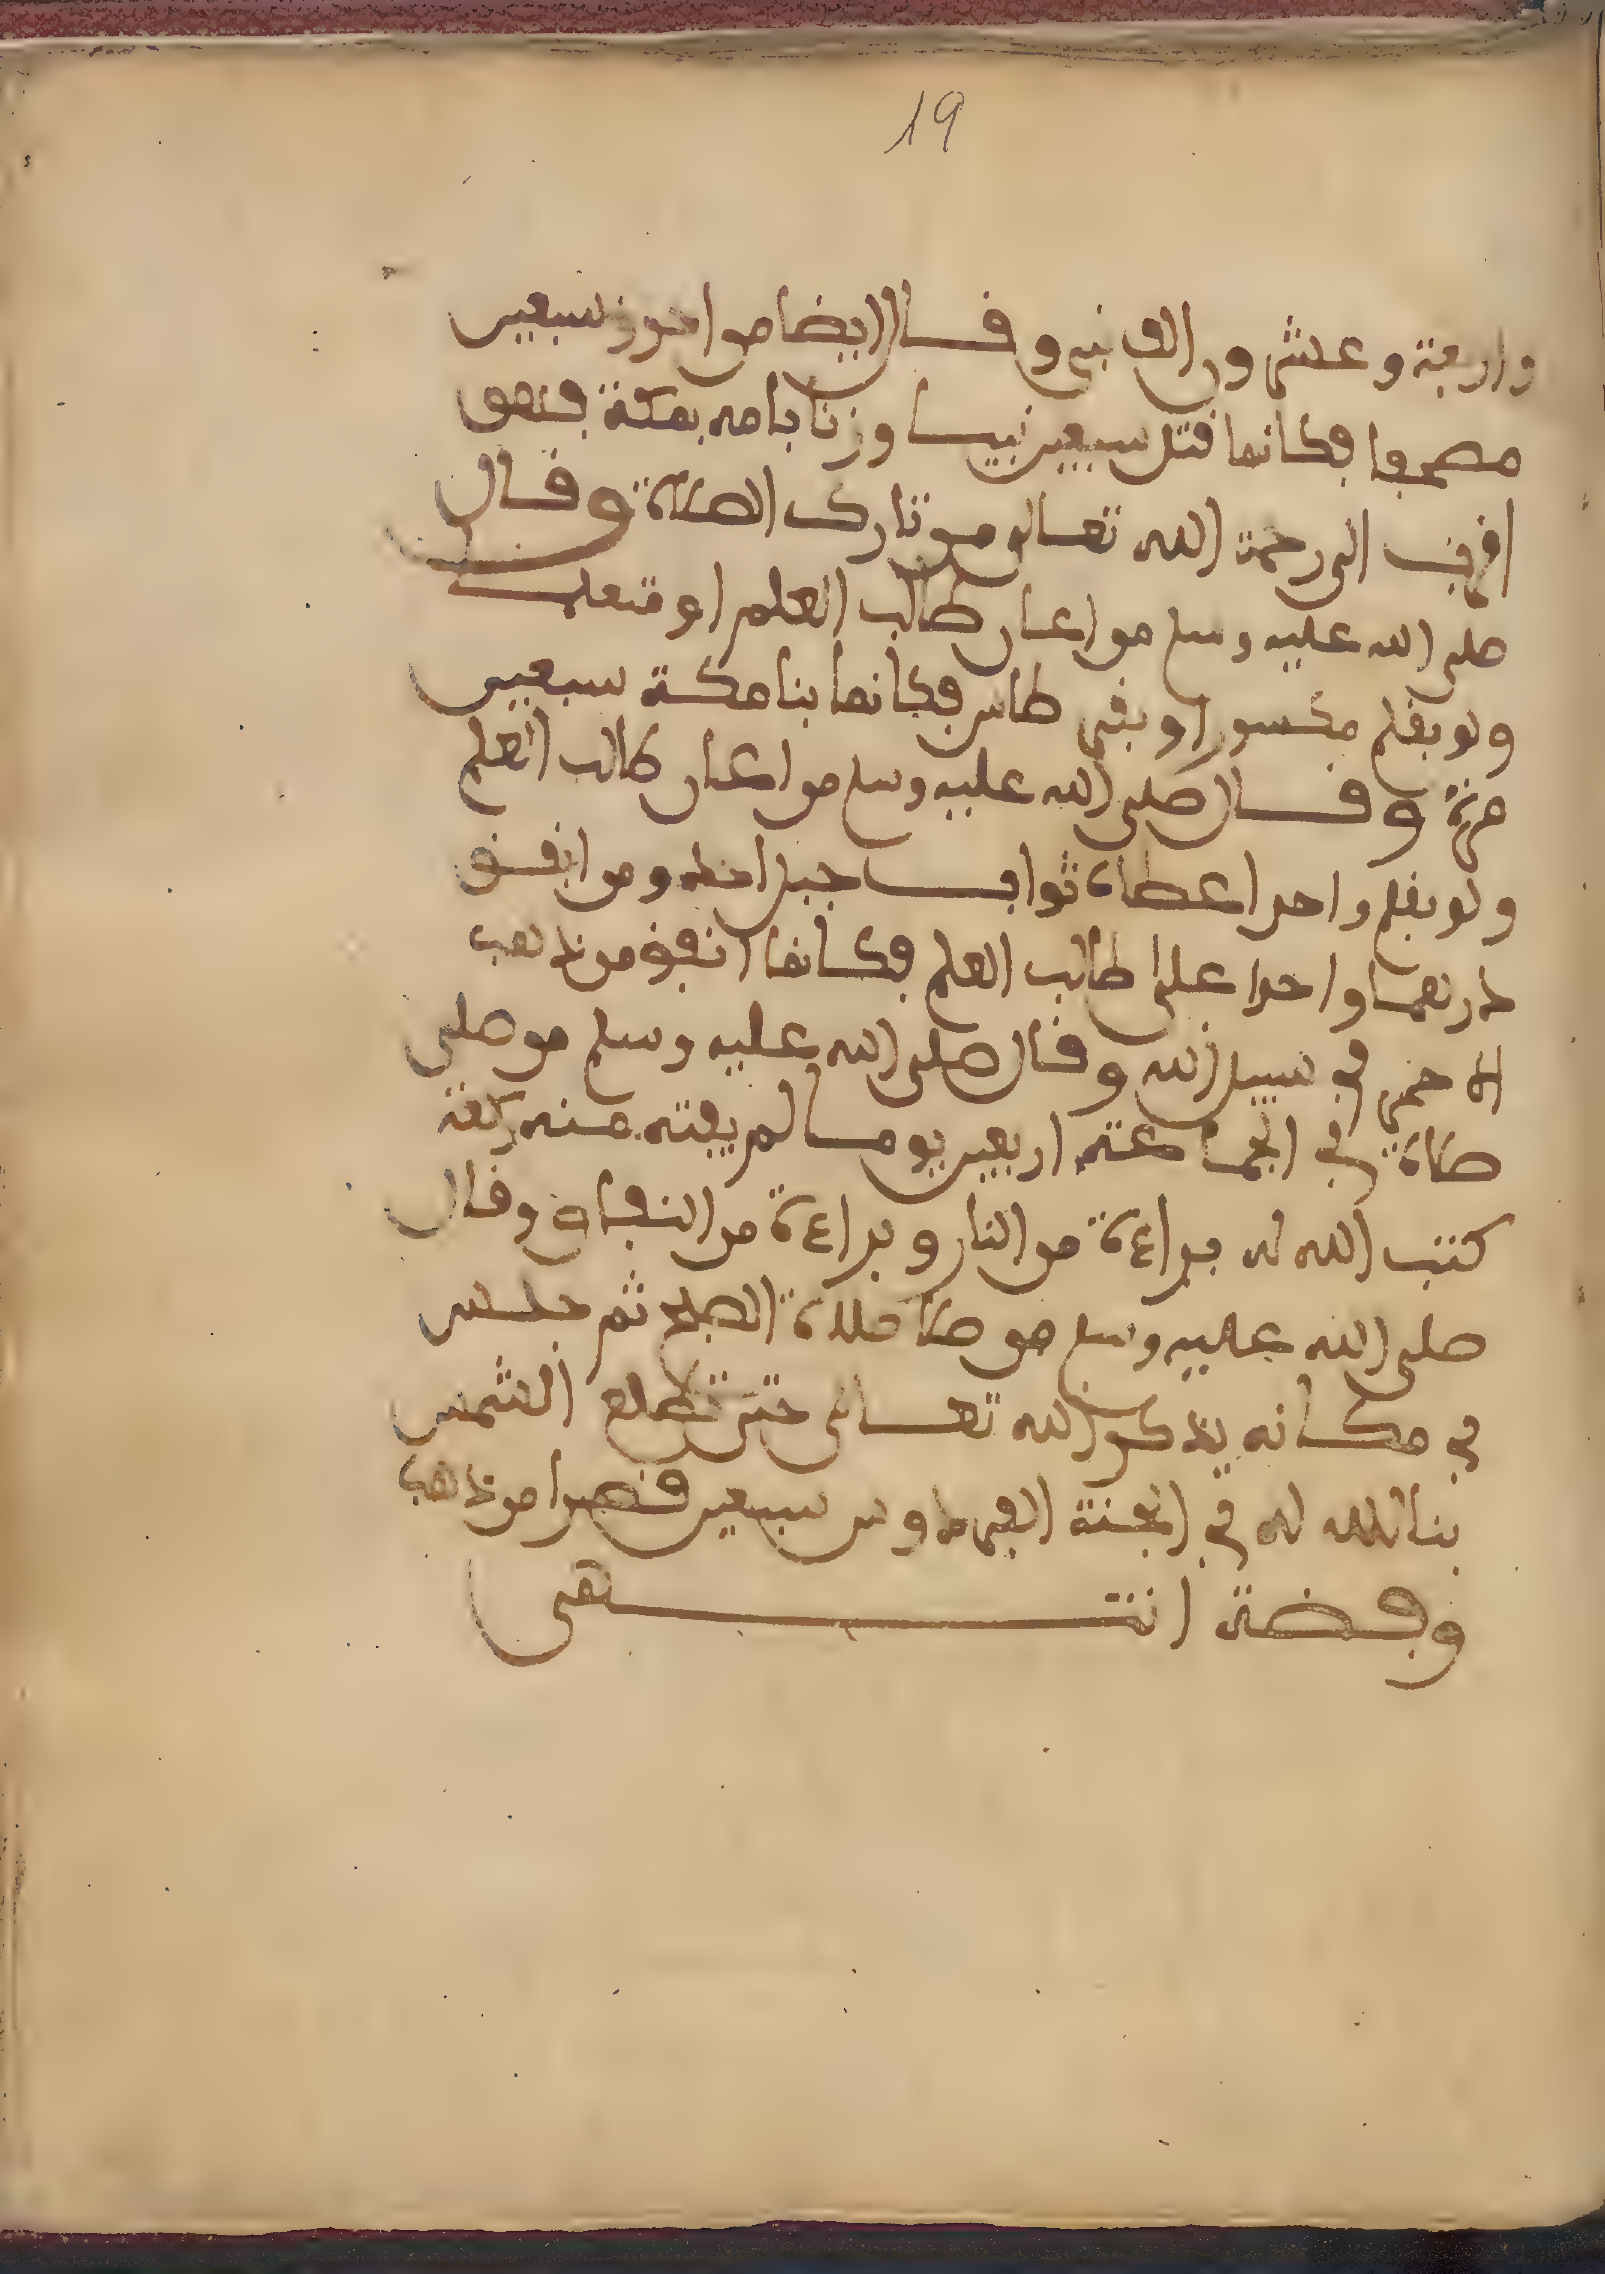 19
واربعة وعشرون الف نبي وقال ايضا من احرق سبعين
مصحفا فكانما قتل سبعين نبيا وزنا بامه بمكة فهو
اقرب الى رحمة الله تعالى من تارك الصلاة وقال
صلى الله عليه وسلم من اعان طالب العلم او متعلما
ولو بقلم مكسور او بقي طاس فكانما بنا مكة سبعين
مرة وقال صلى الله عليه وسلم من اعان طالب العلم
ولو بقلم واحد اعطاه ثوابا جبل احد ومن انفق
درهما واحدا على طالب العلم فكانما انفق من ذهب
الاحمر في سبيل الله وقال صلى الله عليه وسلم من صلى
صلاة في الجماعة اربعين يوما لم يفته منه ركعة
كتب الله له براءة من النار وبراءة من النفاق وقال
صلى الله عليه وسلم من صلا صلاة الصبح ثم جلس
في مكانه يذكر الله تعالى حتى تطلع الشمس
بنا الله له في الجنة الفردوس سبعين قصرا من ذهب
وفضة انتهى